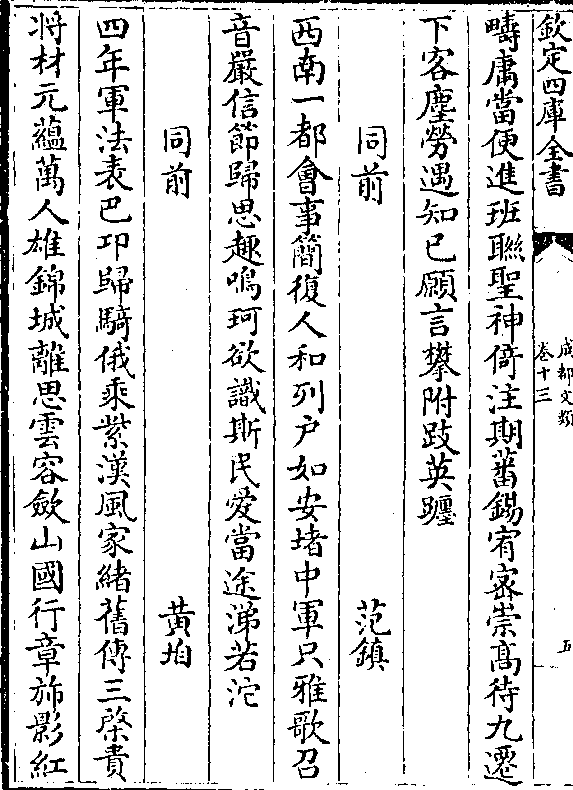 欽定四庫全書
成都文類
卷十三
五
疇庸當便進班聯聖神倚注期蕃錫宥宻崇髙待九遷
下客塵勞遇知已願言攀附跂英躔
同前
范鎮
西南一都會事簡復人和列户如安堵中軍只雅歌召
音嚴信節歸思趣鳴珂欲識斯民愛當途涕若沱
同前
黄垍
四年軍法表巴卭歸騎俄乘紫漢風家緒舊傳三棨貴
将材元藴萬人雄錦城離思雲容斂山國行章斾影紅